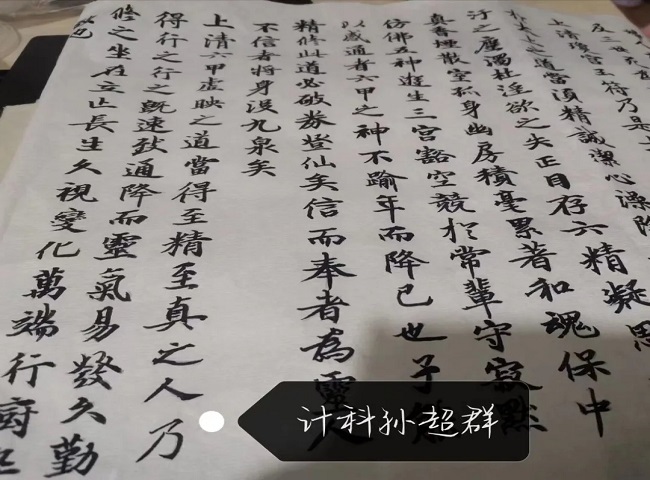 上清瓊宮玉符乃是
道當須精誠潔心澡除
汙之塵濁杜淫欲之失正目存六精凝思
真香埋散室孤身幽房積毫累著和魂保中
仿佛五神遊生三宮豁空競於常輩守寂默
以感通者六甲之神不踰年而降已也子
精修此道必破券登仙矣信而奉者為靈人
不信者將身沒九泉矣
上清六甲虛映之道當得至精至真之人乃
得行之行之既速致通降而靈氣易發久勤
修之坐在立亡長生久視變化萬端行廚
計科孙超群